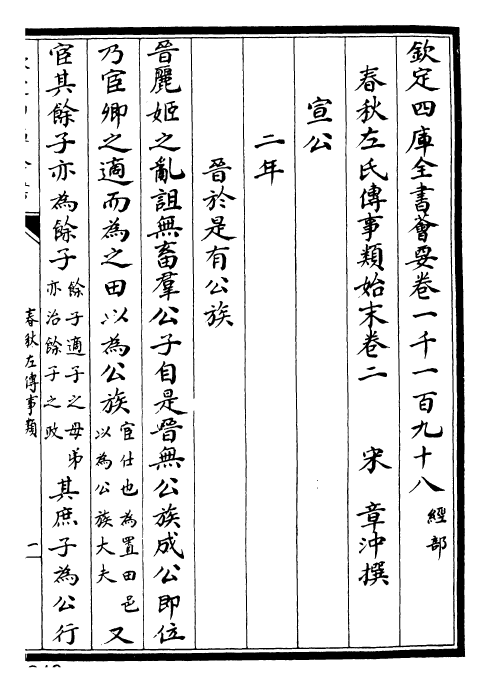 欽定四庫全書薈要卷一千一百九十八 經部
春秋左氏傳事類始末卷二 宋 章沖撰
宣公
二年
晉於是有公族
晉麗姬之亂詛無畜羣公子自是晉無公族成公即位
乃宦卿之適而為之田以為公族宦仕也為置田邑以為公族大夫又
宦其餘子亦為餘子餘子適子之母弟亦治餘子之政其庶子為公行
春秋左傳事類
一